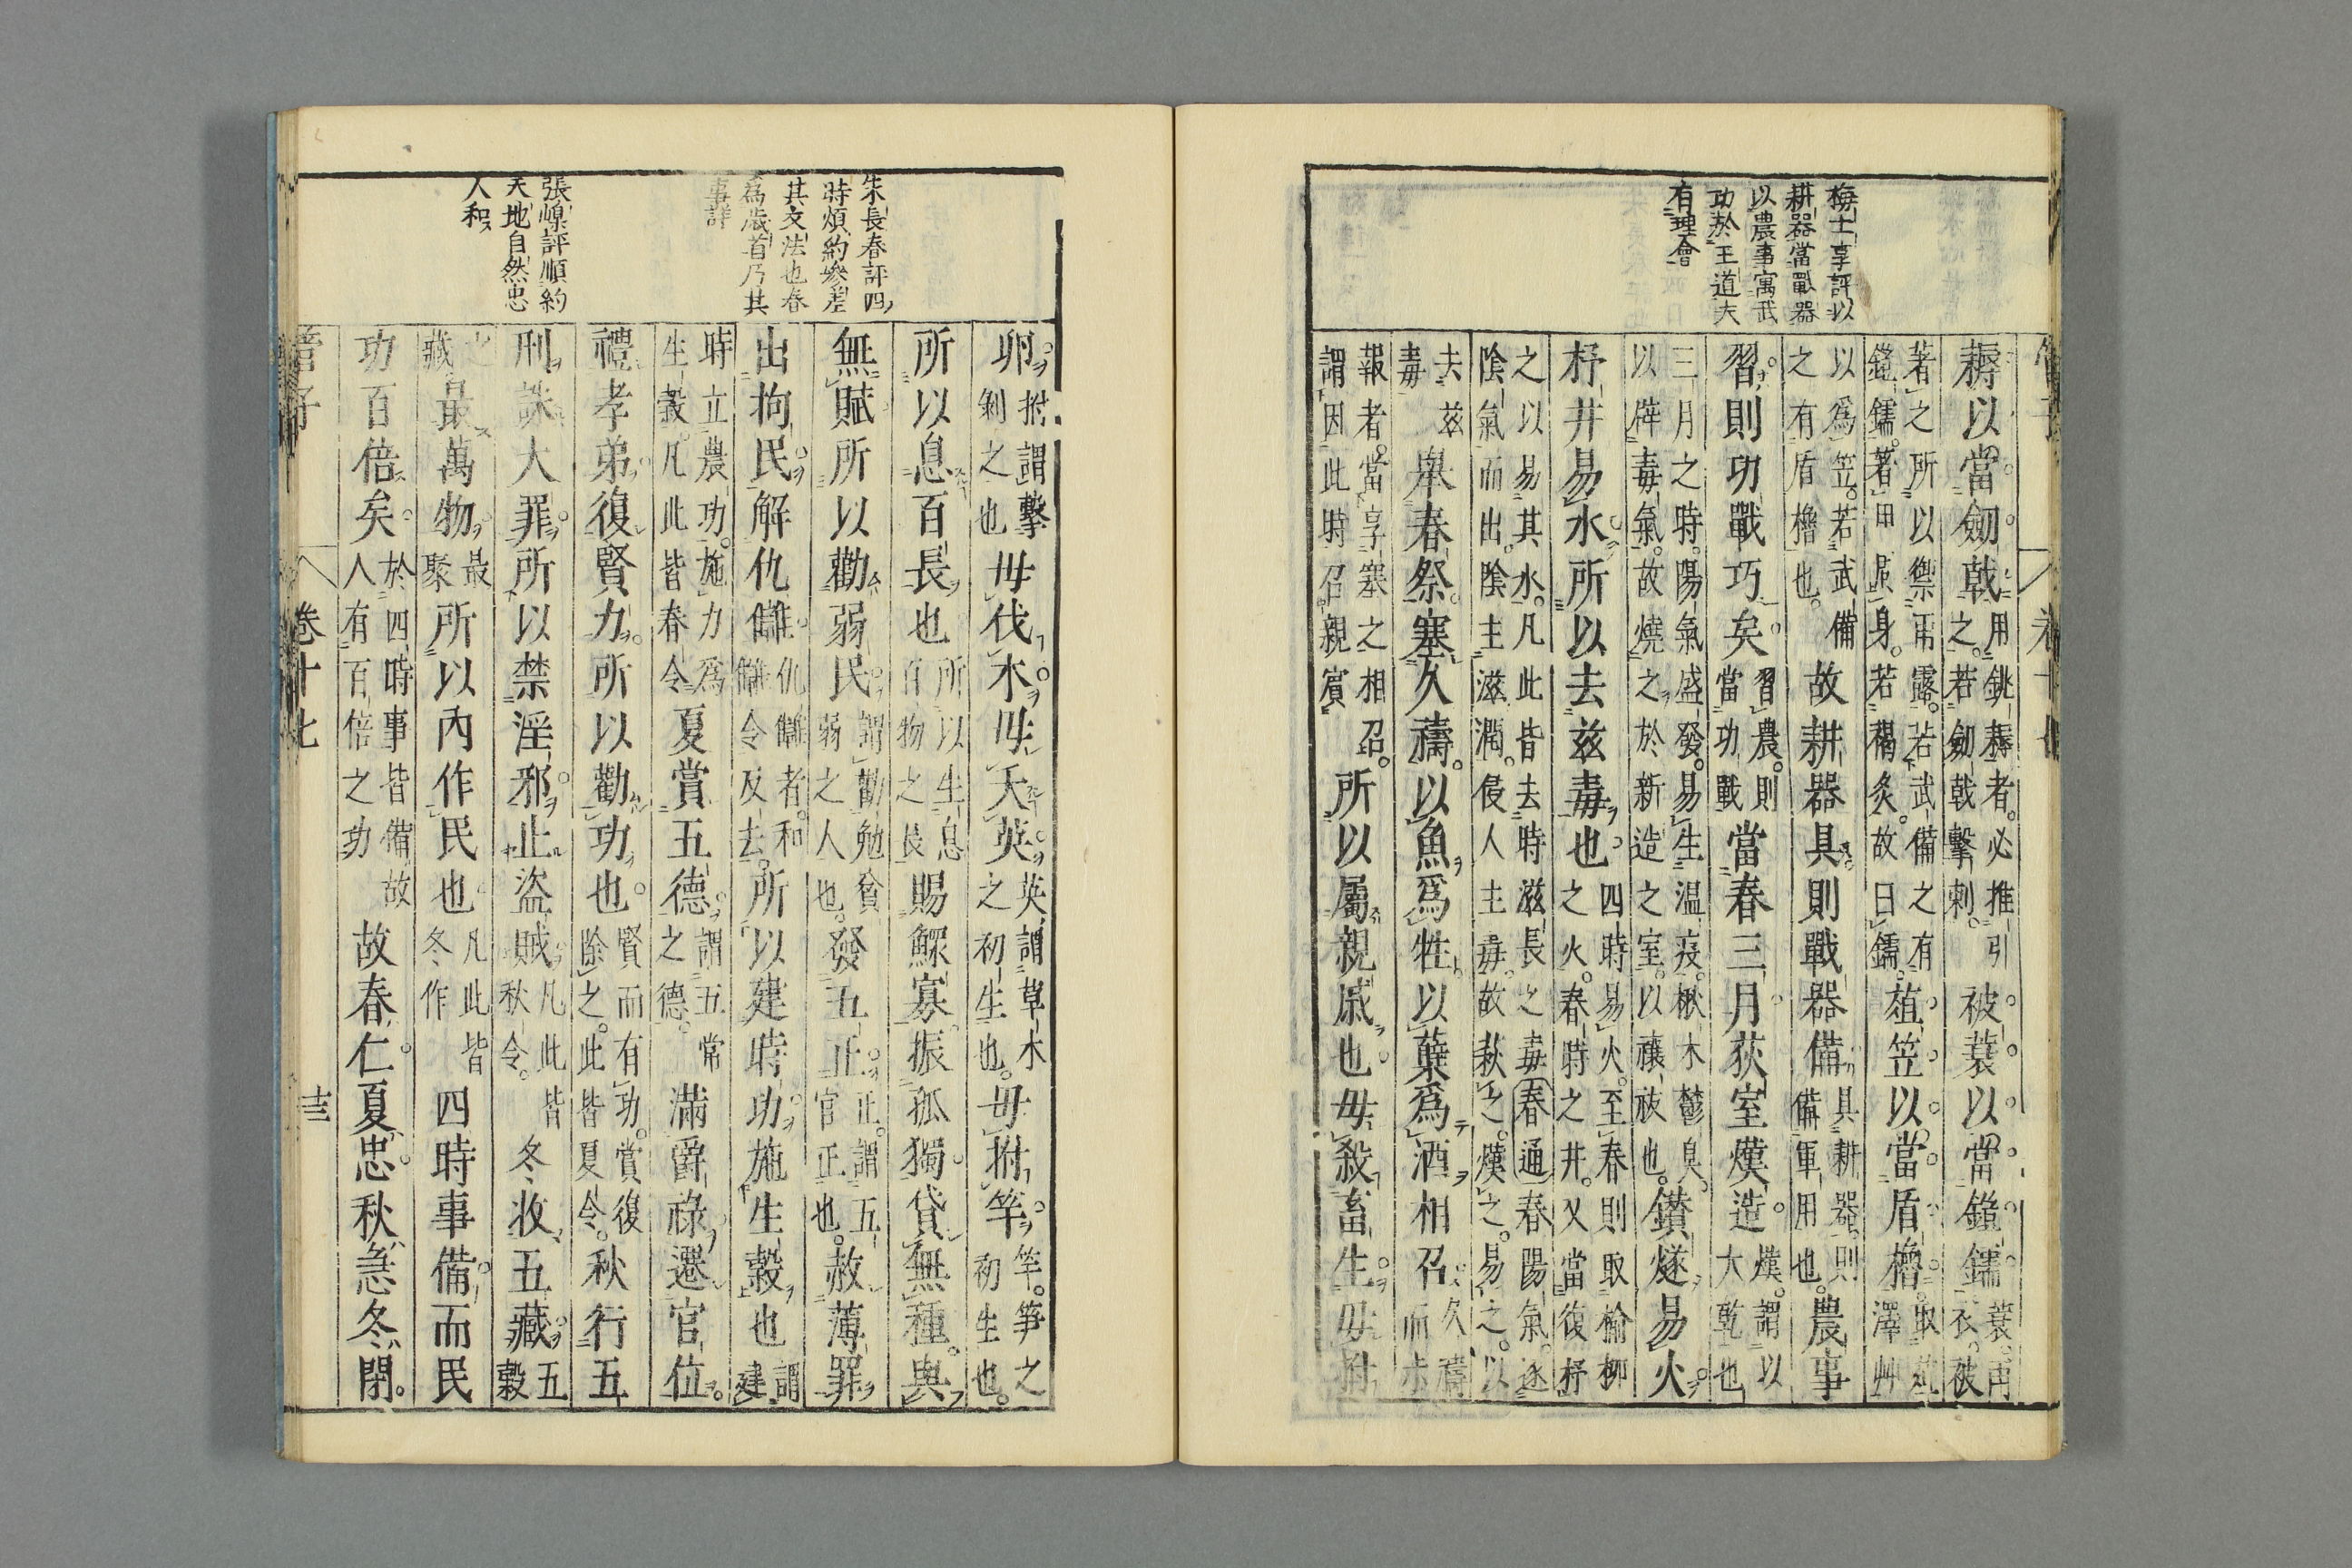 梅士享評以
耕器當戰器
以農事寓武
功於王道大
有理會
耨以當劒戟用銚耨者必推引之若劒戟擊刺被蓑以當鎧鑐蓑雨衣被
著之所以禦雨露若武備之有鎧鑐著甲身若褐炙故曰鑐菹笠以當盾櫓取菹澤艸
以為笠若武備之有盾櫓也故耕器具則戰器備具耕器則備軍用也農事
習則功戰巧矣習農則當功戰當春三月荻室熯造熯謂以大乾也
三月之時陽氣盛發易生温疫楸木鬱臭以牌毒氣故燒之於新造之室以禳祓也鑚燧易火
杼井易水所以去茲毒也四時易火至春則取榆柳之火春時之井又當復杼
之以易其水凡此皆去時滋長之毒春通春陽氣逐陰氣而出陰主滋潤侵人主毒故秋之熯之易之以
去茲毒舉春祭塞久禱以魚爲牲以櫱爲酒相召久禱而未
報者當享塞之相召謂因此時召親賓所以屬親戚也毋殺畜生毋拊
朱長春評四
時煩約參差
其文法也春
為歲首乃其
事詳
張嵲評順約
天地自然忠
人和
卵拊謂擊剝之也毋伐木毋夭英英謂草木之初生也毋拊竿竿笋之初生也
所以息百長也所以生息百物之長賜鰥寡振孤獨貸無種與
無賦所以勸弱民謂勸勉貧弱之人也發五正正謂五官正也赦薄罪
出拘民解仇讎仇讎者和讎令反去所以建時功施生穀也謂建
時立農功施力為生穀凡此皆春令夏賞五德謂五常之德滿爵祿遷官位
禮孝弟復賢力所以勸功也賢而有功賞復除之此皆夏令秋行五
刑誅大罪所以禁淫邪止盜賊凡此皆秋令冬收五藏五穀
之藏最萬物最聚所以內作民也凡此皆冬作四時事備而民
功百倍矣於四時事皆備故人有百倍之功故春仁夏忠秋急冬閉
管子 卷十七 十三